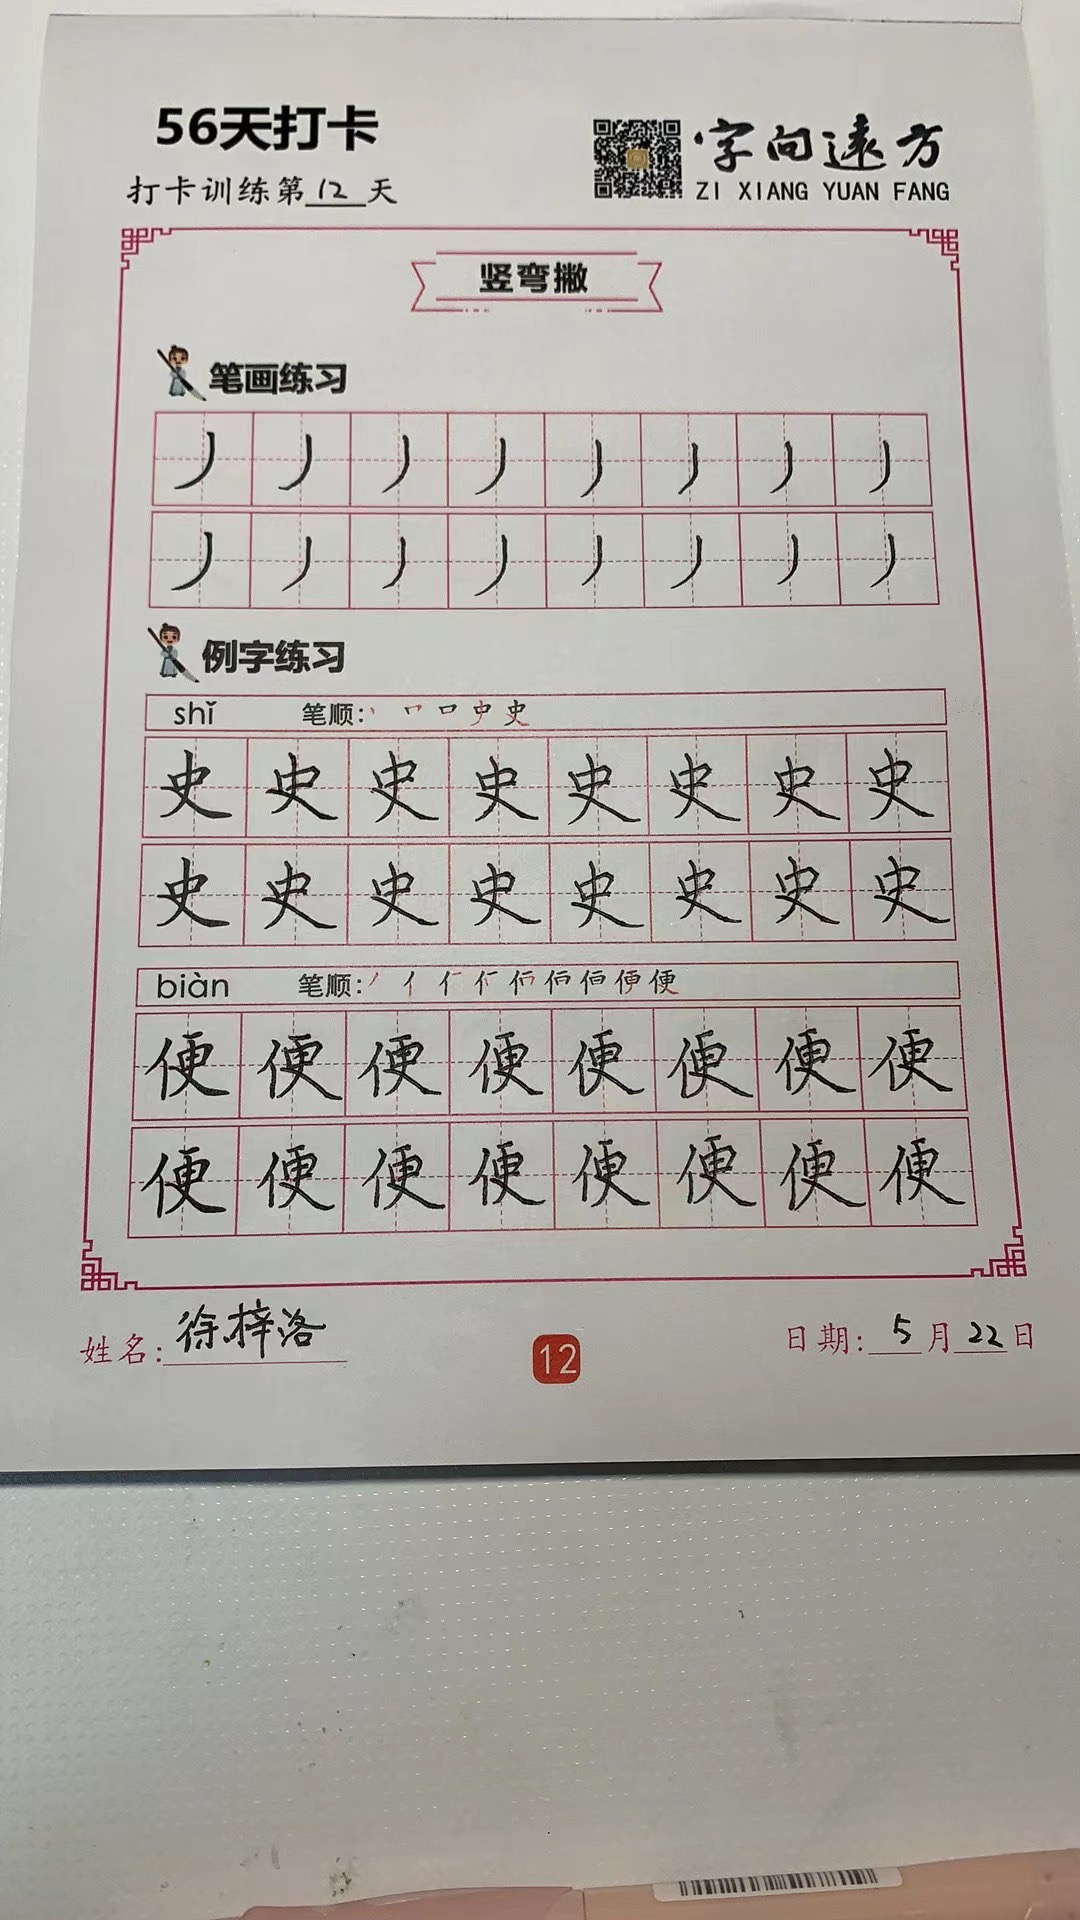 56天打卡
打卡训练第12天
字向远方
ZI XIANG YUAN FANG
竖弯撇
笔画练习
丿丿丿丿丿丿丿丿
丿丿丿丿丿丿丿丿
例字练习
shǐ 笔顺：
史史史史史史史史
史史史史史史史史
biàn 笔顺：
便便便便便便便便
便便便便便便便便
姓名：徐梓洛
12
日期：5月22日